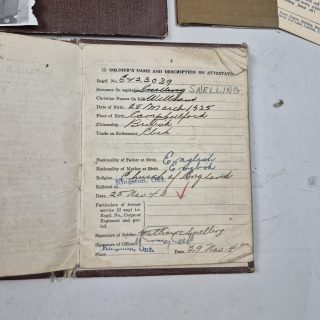 (1) SOLDIER'S NAME AND DESCRIPTION ON ATTESTATION
Regtl. No. C-423039
Surname (in capitals) Snelling SNELLING
Christian Names (in full) William
Date of Birth 28 March 1925
Place of Birth Campbellford
Citizenship British
Trade on Enlistment Clerk
Nationality of Father at Birth English
Nationality of Mother at Birth English
Religion Church of England
Enlisted at Kingston, Ont.
Date 25 Nov 43
Particulars of former
service (if any) i.e.
Regtl. No., Corps or
Regiment and pe-
riod.
Signature of Soldier William Snelling
Signature of Officer
Place Kingston, Ont. Date 29 Nov 43